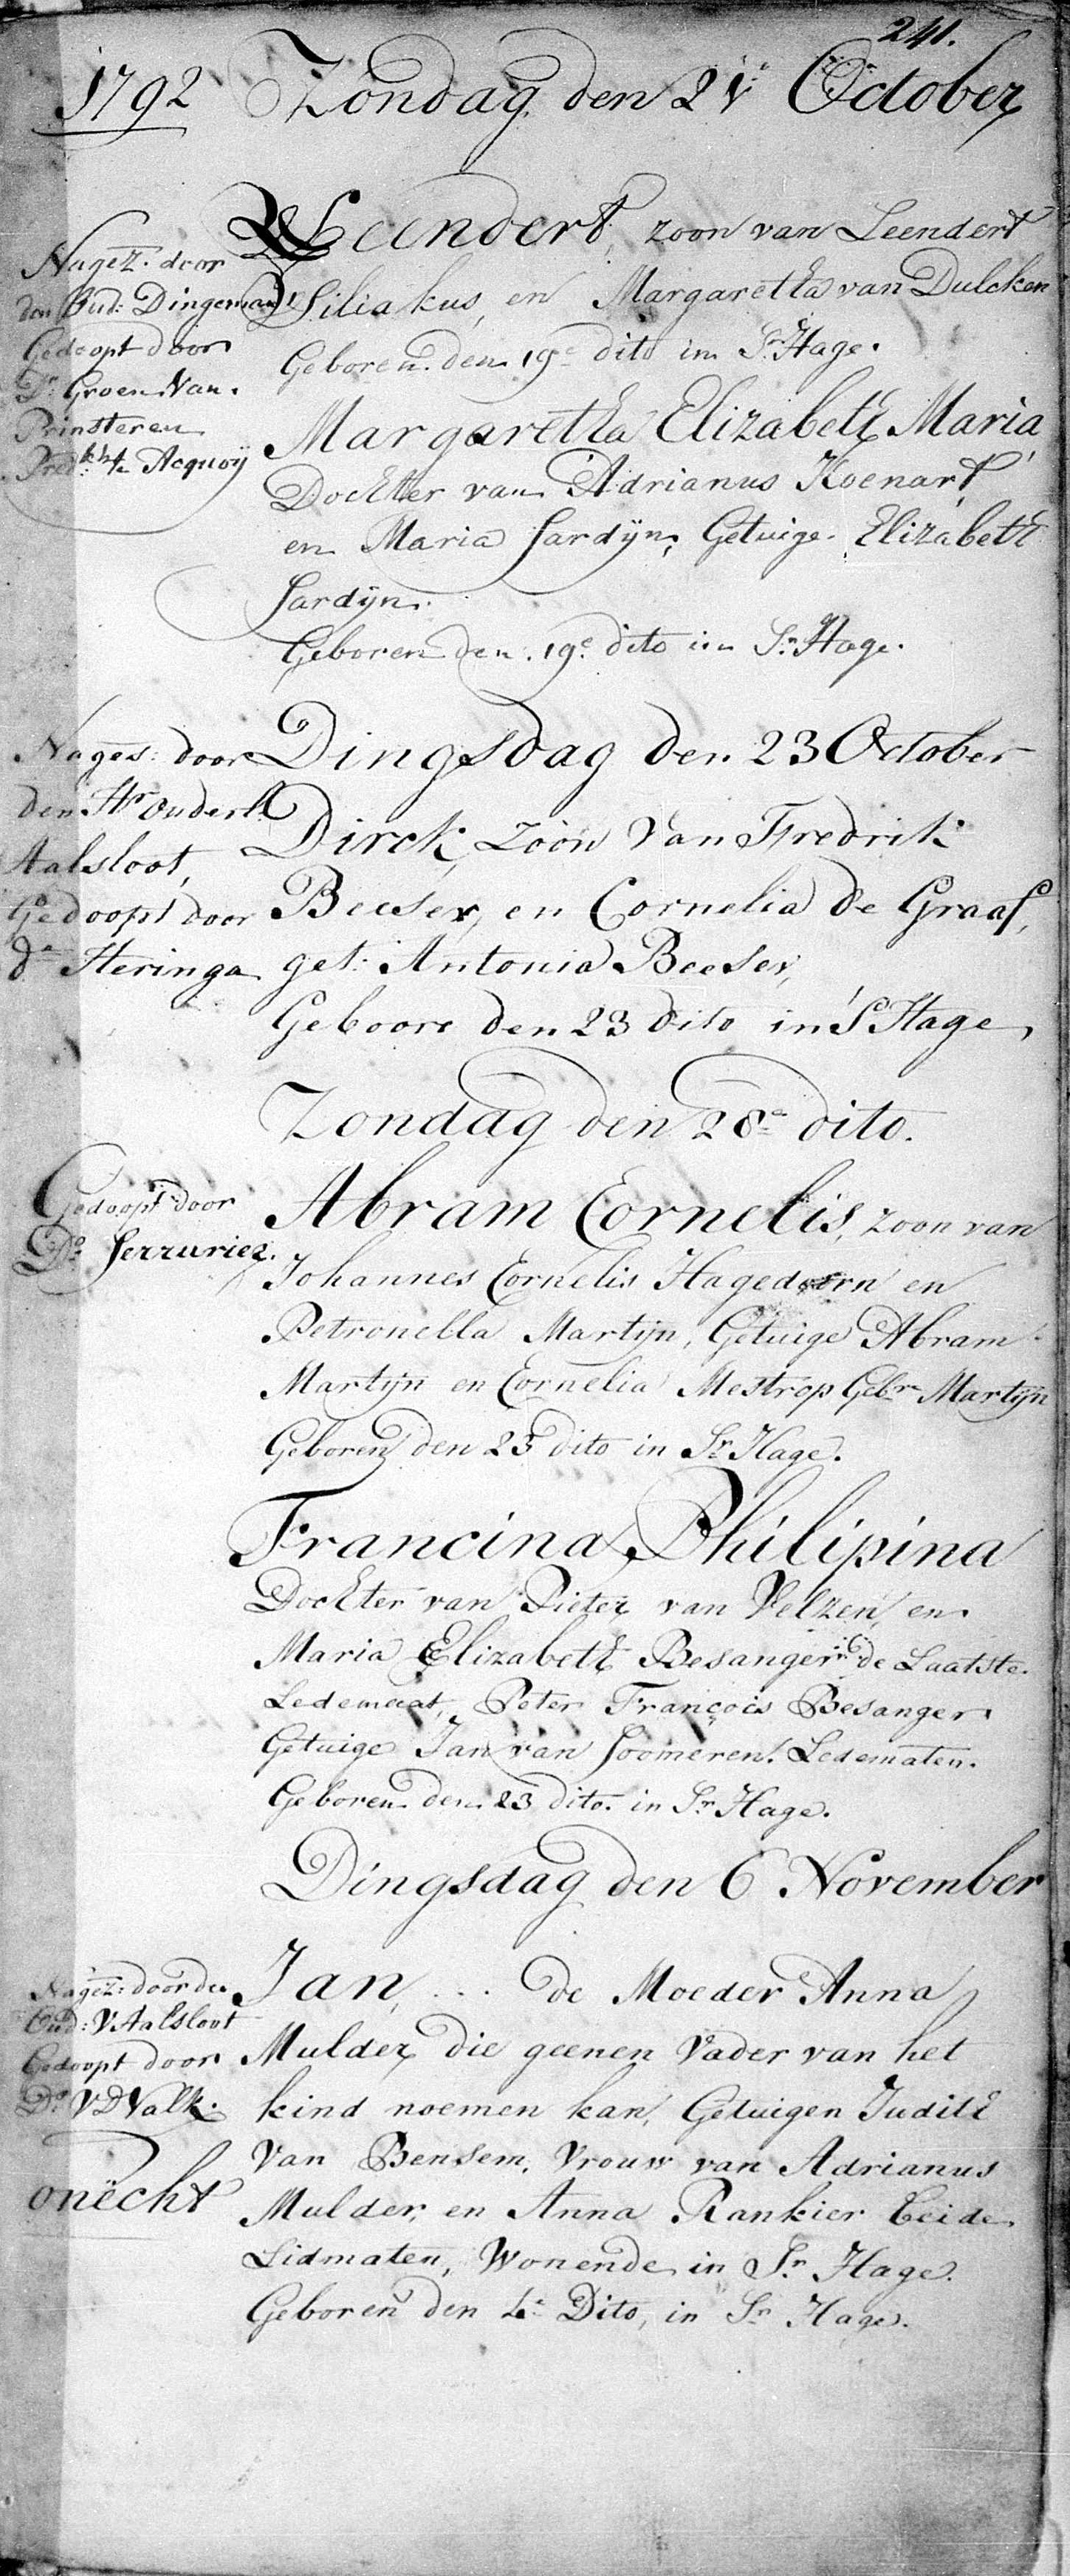 241.
1792 Zondag den 21e October
Leendert, zoon van Leendert
Siliakus, en Margaretha van Dulcken
Geboren den 19e dito in Sr Hage.
Nagez. door
den Oud: Dingemans
Gedoopt door
Ds Groen Van
Prinsteren
Predkt te Acquoij
Margaretha Elizabeth Maria
Dochter van Adrianus Koenart,
en Maria Sardijn, Getuige Elizabeth
Sardijn.
Geboren den 19e dito in Sr Hage.
Dingsdag den 23 October
Nages: door
den Hr ouderl:
Aalsloot,
Gedoopt door
do Heringa
Dirck, zoon van Fredrik
Beeser, en Cornelia de Graaf,
get: Antonia Beeser,
Geboore den 23 dito in 'S Hage,
Zondag den 28e dito.
Gedoopt door
Do Serrurier.
Abram Cornelis, zoon van
Johannes Cornelis Hagedoorn en
Petronella Martijn, Getuige Abram
Martijn en Cornelia Mestrop Gebr Martijn
Geboren den 23 dito in Sr Hage.
Francina Philipina
Dochter van Pieter van Velzen, en
Maria Elizabeth Besanger de Laatste
Ledemaat, Peter François Besanger
Getuige Jan van Soomeren. Ledematen.
Geboren den 23 dito. in Sr Hage.
Dingsdag den 6 November
Nagez: door den
Oud: V Aalsloot
Gedoopt door
Do V D Valk.
onëcht
Jan, ... de Moeder Anna
Mulder, die geenen Vader van het
kind noemen kan, Getuigen Judith
Van Bensem, Vrouw van Adrianus
Mulder, en Anna Rankier beide
Lidmaten, Wonende in Sr Hage.
Geboren den 4e Dito, in Sr Hage.